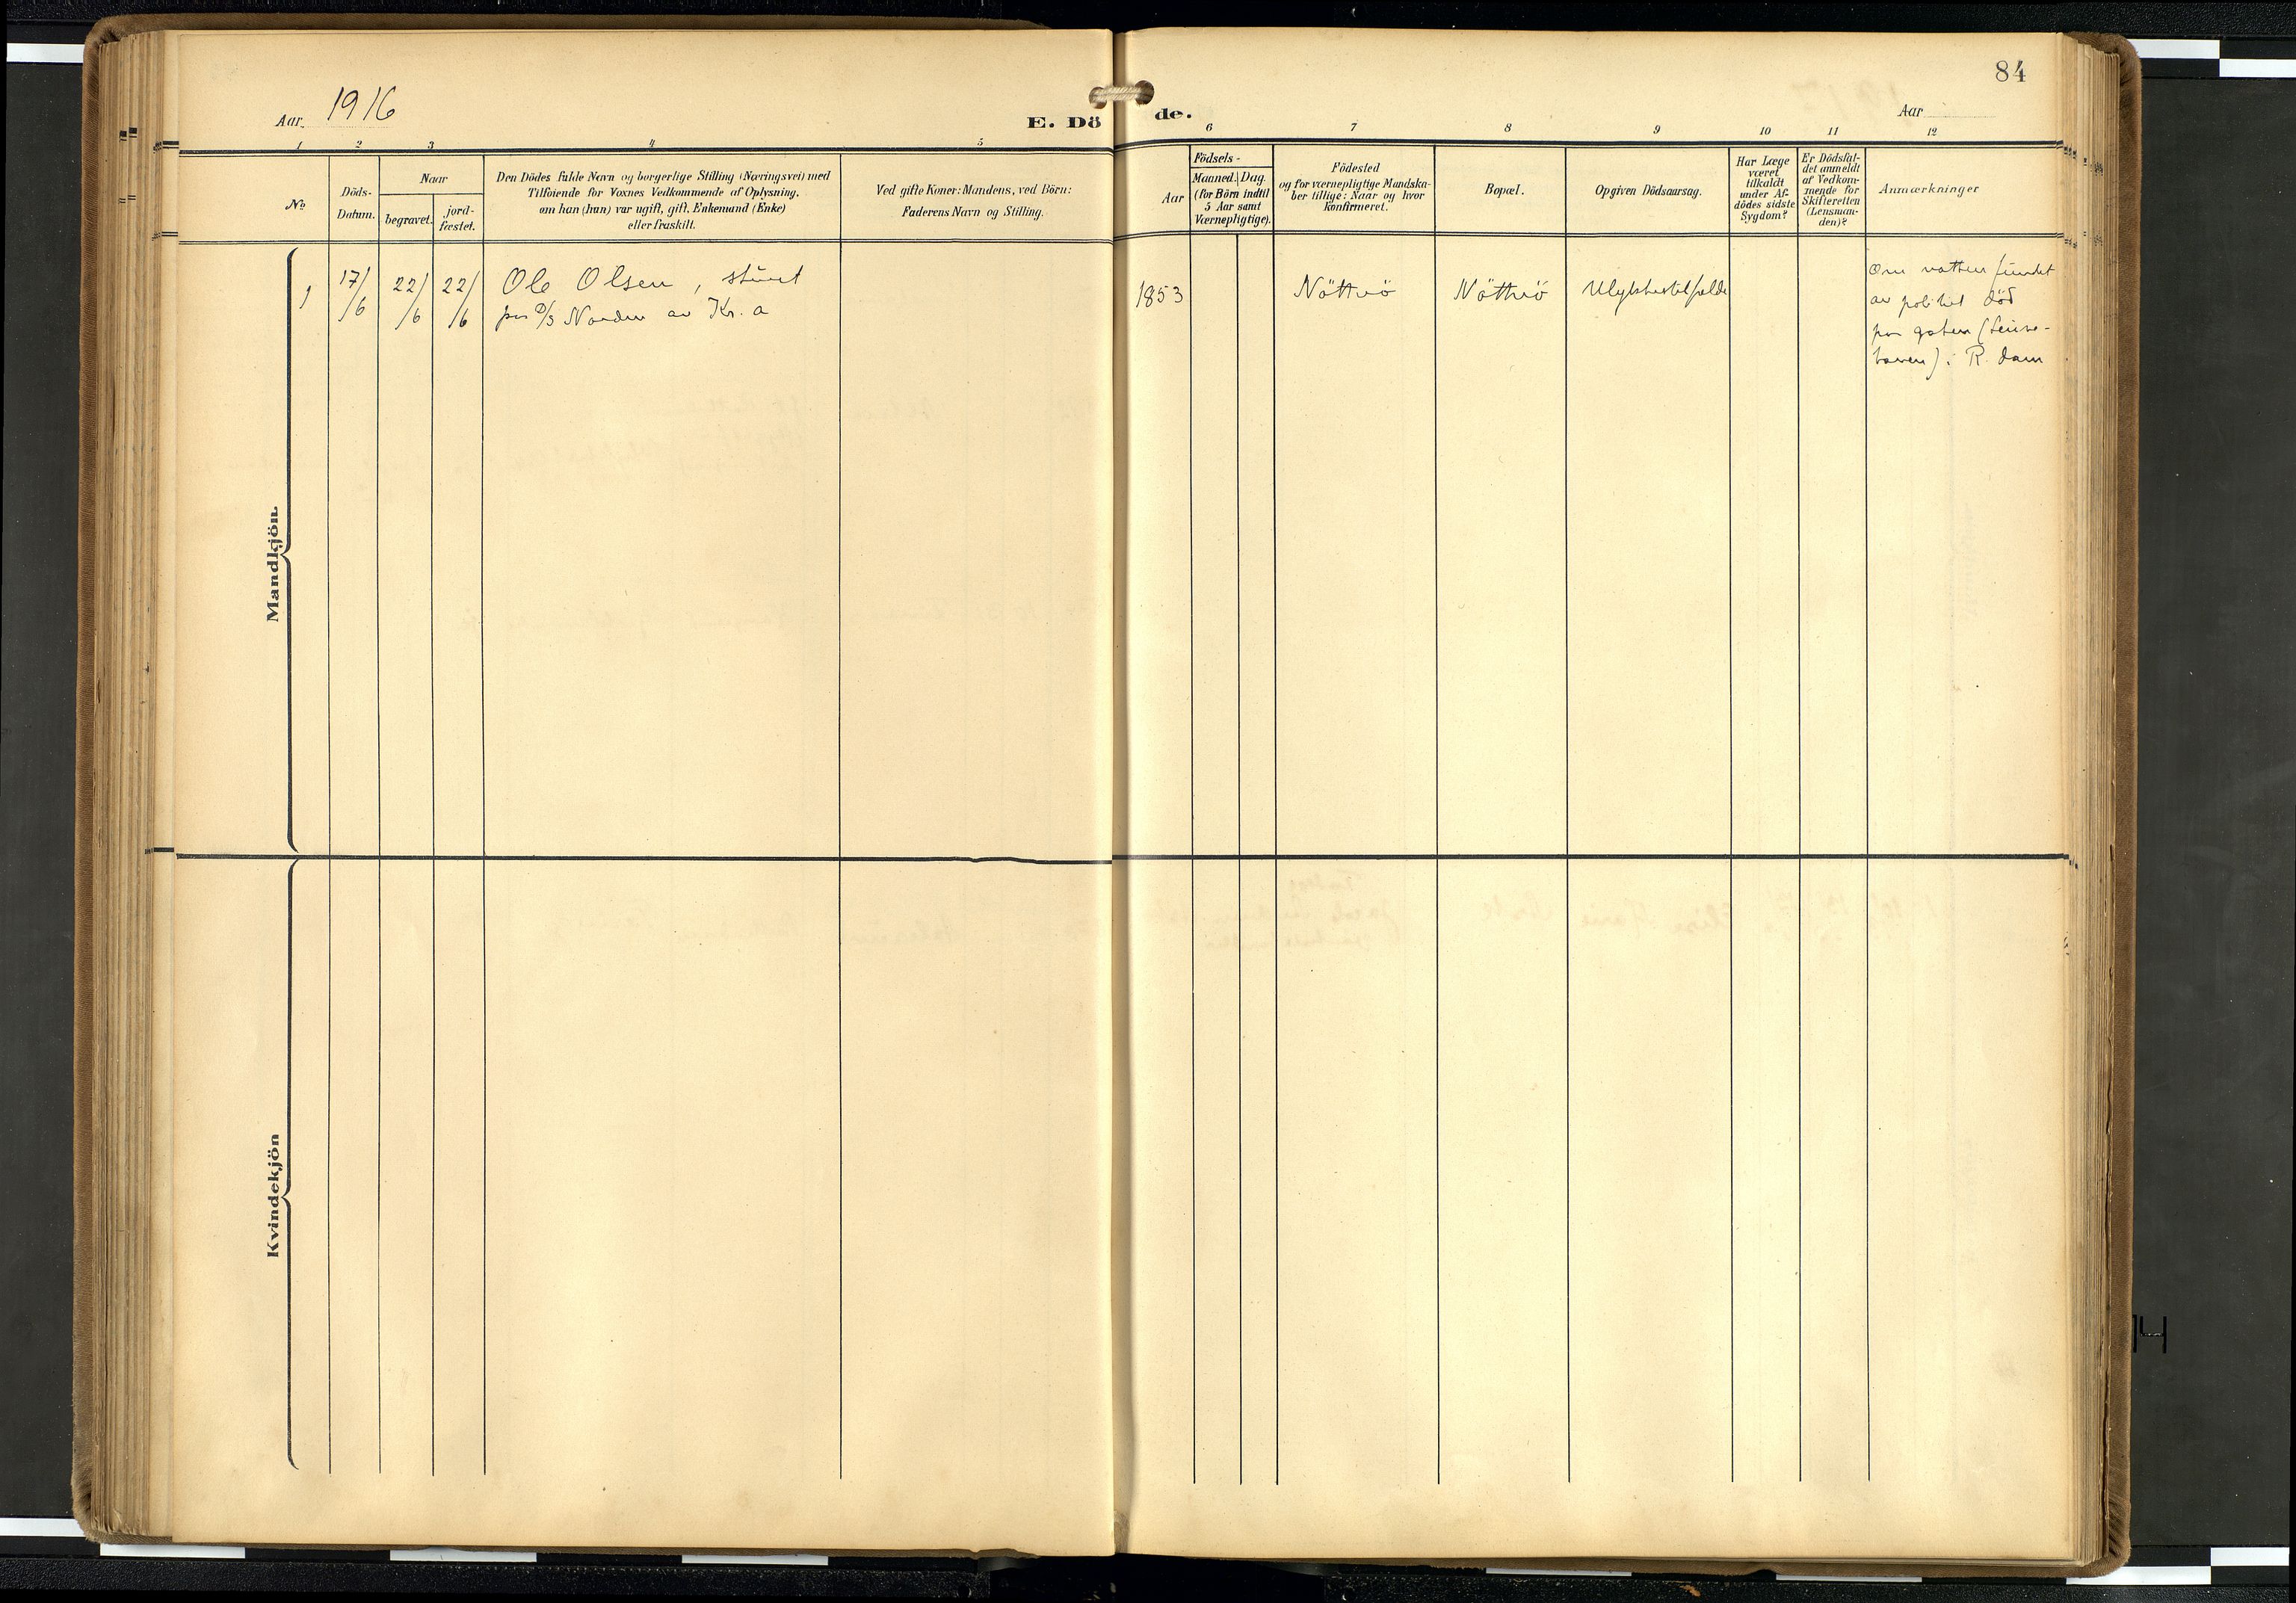 84
Aar 1916
E. Dö
de.
Aar
1 2 3 4 5
6 7 8 9 10 11 12
No
Döds-
Datum.
Naar
begravet.
jord-
fæstet.
Den Dödes fulde Navn og borgerlige Stilling (Næringsvei) med
Tilföiende for Voxnes Vedkommende af Oplysning,
om han (hun) var ugift, gift, Enkemand (Enke)
eller fraskilt.
Ved gifte Koner: Mandens, ved Börn:
Faderens Navn og Stilling.
Aar
Födsels-
Maaned. Dag.
(for Börn indtil
5 Aar samt
Værnepligtige).
Födested
og for værnepligtige Mandska-
ber tillige: Naar og hvor
konfirmeret.
Bopæl.
Opgiven Dödsaarsag.
Har Læge
været
tilkaldt
under Af-
dödes sidste
Sygdom?
Er Dödsfal-
det anmeldt
af Vedkom-
mende for
Skifteretten
(Lensman-
den)?
Anmærkninger
Mandkjön.
1
17/6
22/6
22/6
Ole Olsen, stuert
paa D/S Norden av Kr. a
1853
Nötterö
Nötterö
Ulykkestilfælde
Om natten fundet
av politiet död
paa gaten
i R. dam
Kvindekjön